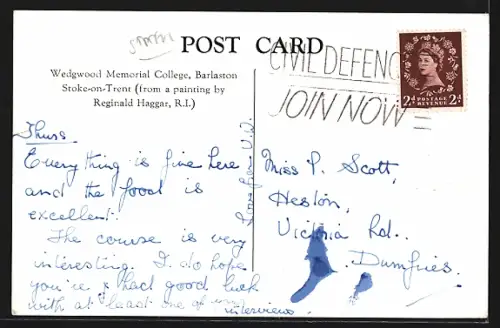 POST CARD
Wedgwood Memorial College, Barlaston
Stoke-on-Trent (from a painting by
Reginald Haggar, R.I.)
CIVIL DEFENC
JOIN NOW
POSTAGE
REVENUE
2d 2d
Thurs.
Everything is fine here
and the food is
excellent.
The course is very
interesting. I do hope
you've had good luck
with at least one of your
interviews.
Love from
Miss P. Scott,
Heston,
Victoria Rd.,
Dumfries.